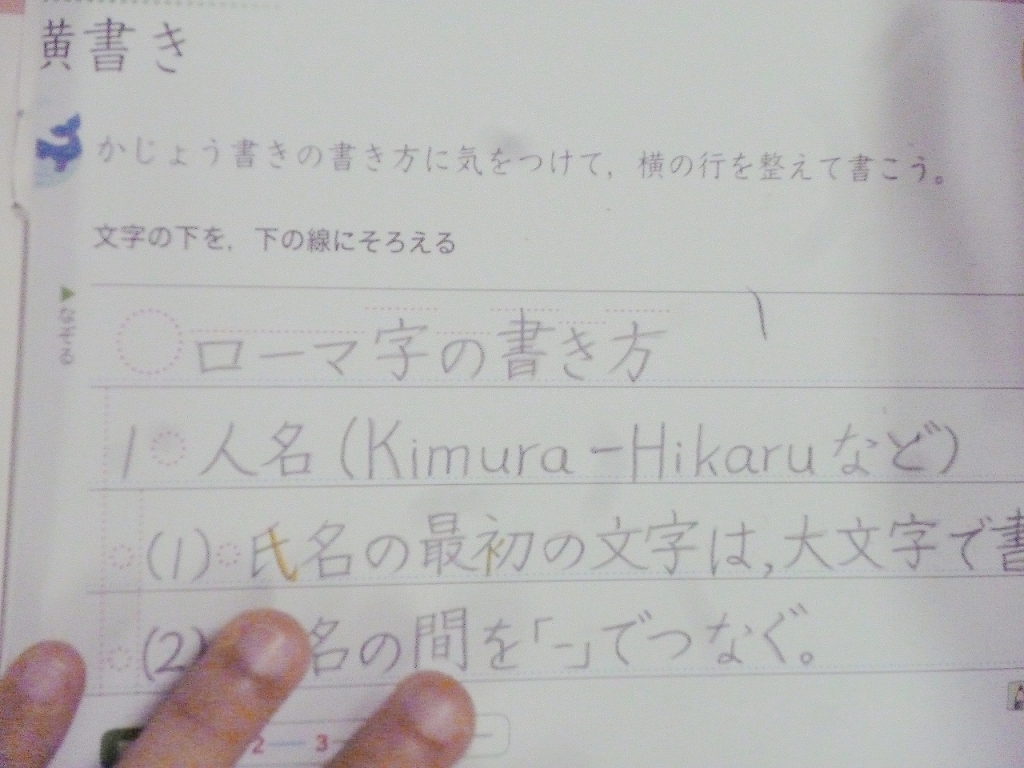 横書き
かじょう書きの書き方に気をつけて，横の行を整えて書こう。
文字の下を，下の線にそろえる
▶なぞる
ローマ字の書き方
1 人名（Kimura－Hikaruなど）
(1) 氏名の最初の文字は，大文字で書
(2) 名の間を「-」でつなぐ。
2 — 3